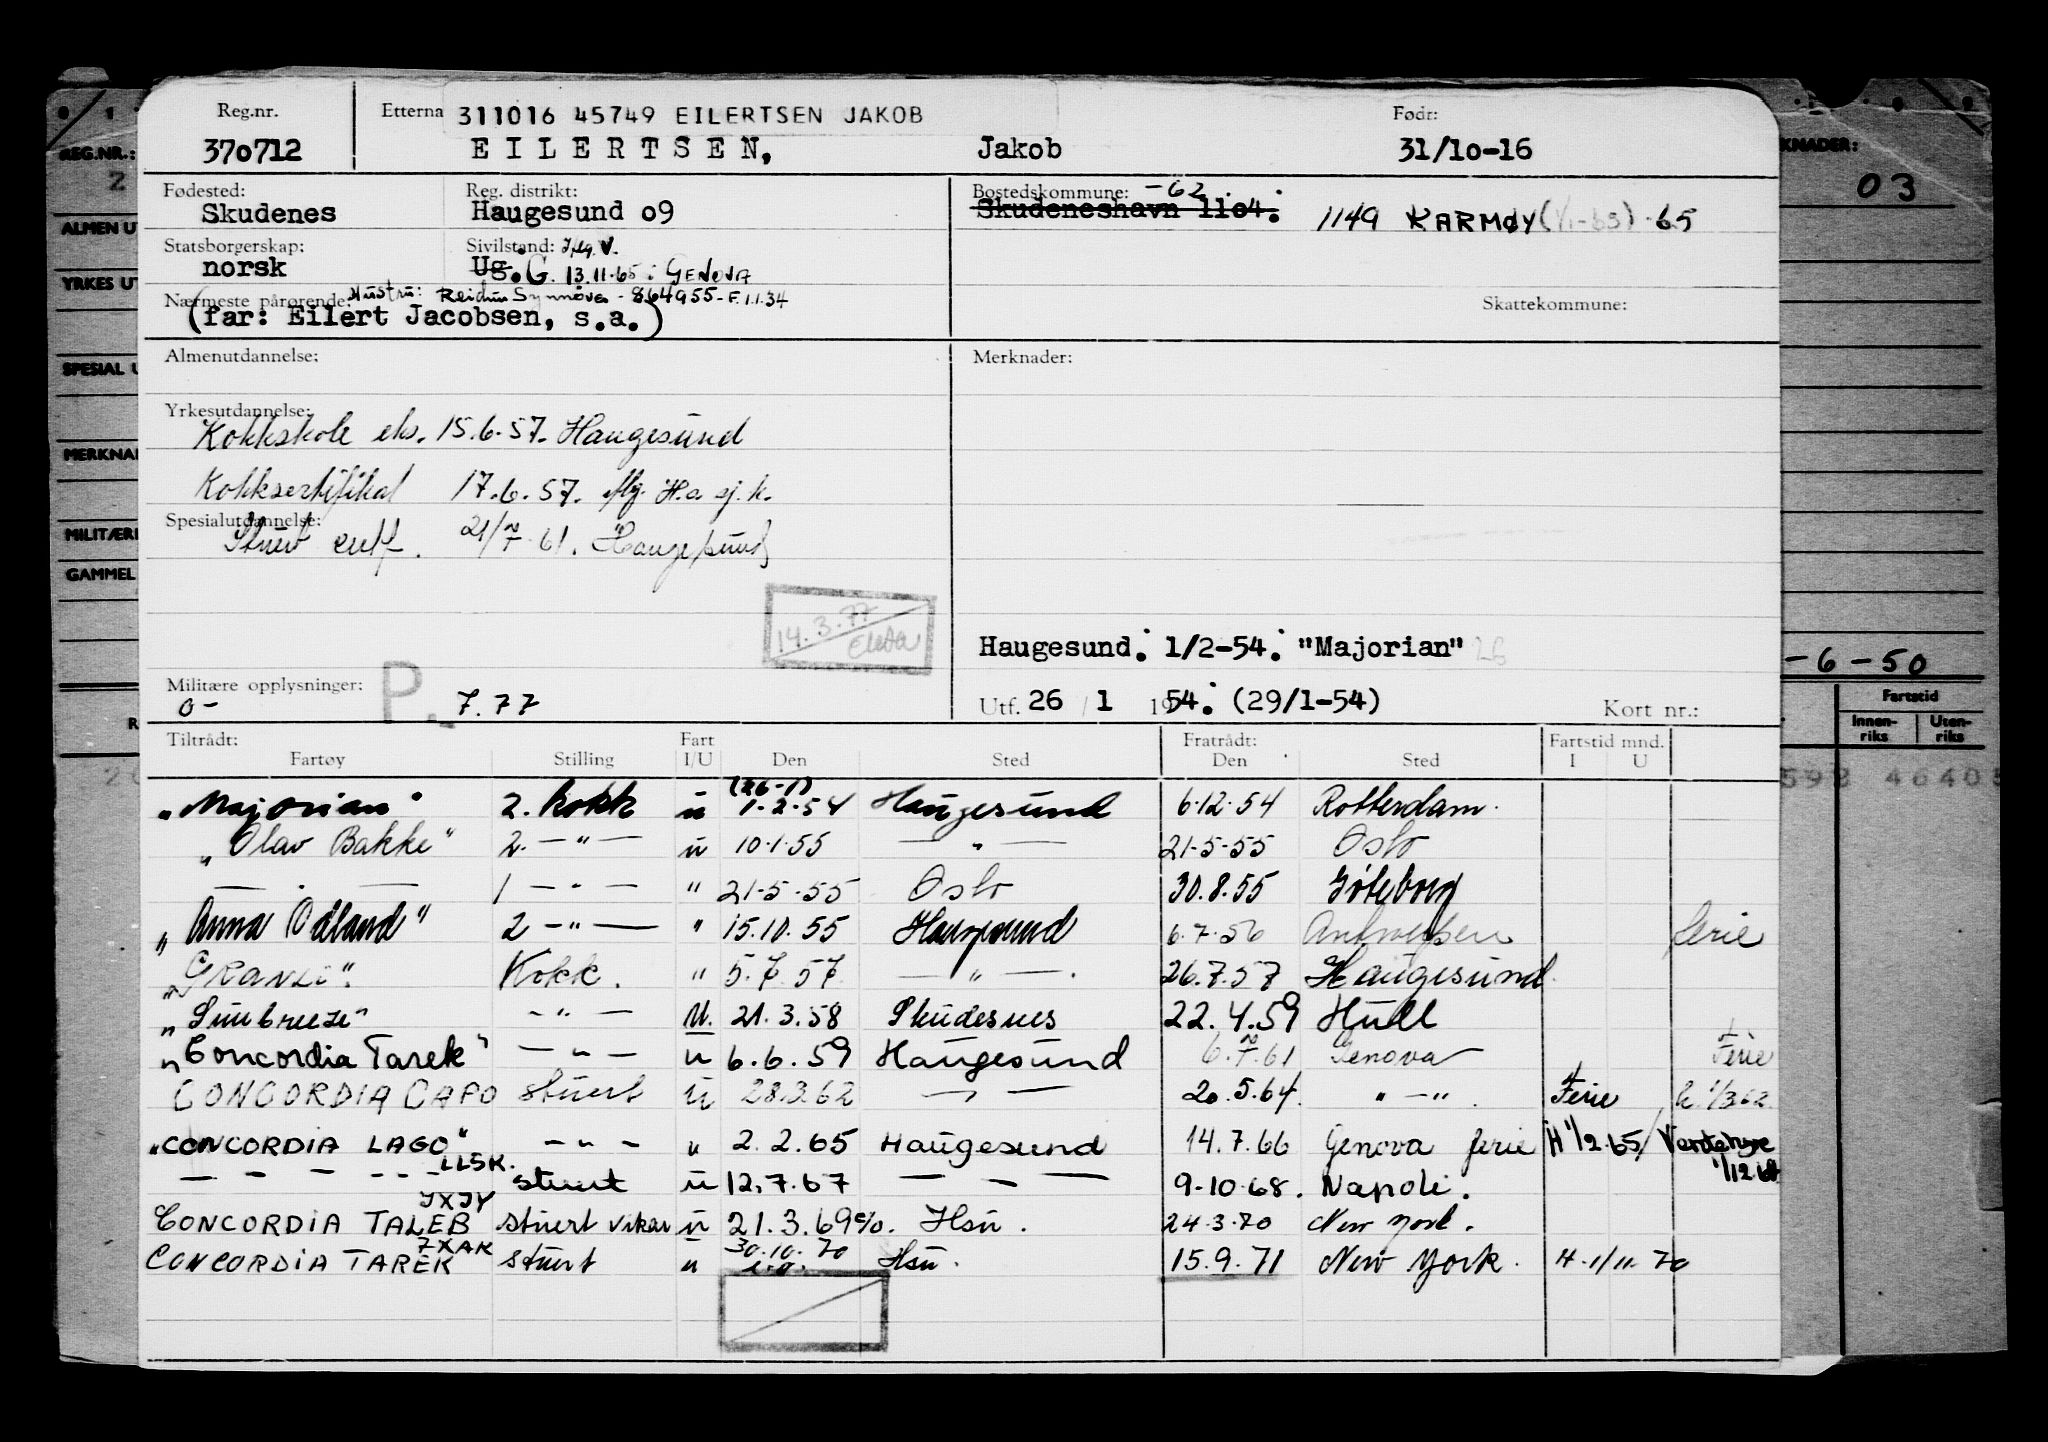 Reg.nr. Etterna 311016 45749 EILERTSEN JAKOB Født:
370712 EILERTSEN, Jakob 31/10-16
REG.NR.: KNADER:
03
Fødested: Reg. distrikt: Bostedskommune: -62
Skudenes Haugesund 09 Skudeneshavn 1104. 1149 KARMØY (1/1-65) -65
ALMEN UT
Statsborgerskap: Sivilstand:
norsk Ug. G. 13.11.65 i GENOVA
YRKES UT
Nærmeste pårørende: Hustru: Reidun Synnøve - 864955 - F. 1.1.34 Skattekommune:
(far: Eilert Jacobsen, s.a.)
Almenutdannelse: Merknader:
SPESIAL U
Yrkesutdannelse:
Kokkskole eks. 15.6.57. Haugesund
MERKNAD
Kokksertifikat 17.6.57. H.a sj.k.
Spesialutdannelse:
Stuert 21/7-61. Haugesund
MILITÆRE
GAMMEL
14.3.77
Haugesund: 1/2-54: "Majorian" 26
-6-50
Militære opplysninger: P. 7.77
0-
Utf. 26 / 1 1954: (29/1-54) Kort nr.:
Fartstid
Innenriks Utenriks
Tiltrådt: Fart Fratrådt: Fartstid mnd.
Fartøy Stilling I/U Den Sted Den Sted I U
"Majorian" 2. kokk u (26-1) 1.2.54 Haugesund 6.12.54 Rotterdam.
"Olav Bakke" 2. — " — u 10.1.55 — " — 21-5-55 Oslo
— " — 1 — " — " 21-5-55 Oslo 30.8.55 Göteborg
"Anna Odland" 2 — " — " 15.10.55 Haugesund 6.7.56 Antwerpen ferie
"GRANLI". Kokk. " 5.7.57 — " — . 26.7.57 Haugesund.
"Sunbreeze" — " — U. 21.3.58 Skudesnes 22.4.59 Hull
"Concordia Tarek" — " — u 6.6.59 Haugesund 6.7.61 Genova Ferie
CONCORDIA CAPO stuert u 28.3.62 — " — 20.5.64. " — " . Ferie h. 1/3 62.
"CONCORDIA LAGO" — " — " 2.2.65 Haugesund 14.7.66 Genova ferie H 1/2.65/
— " — LLSK. stuert u 12.7.67 — " — 9-10-68. Napoli. 1/12.68
CONCORDIA TALEB JXJY stuert vikar u 21.3.69 Hsu. 24.3.70 New York.
CONCORDIA TAREK JXAK stuert u 30.10.70 Hsu. 15.9.71 New York. H.1/11.70